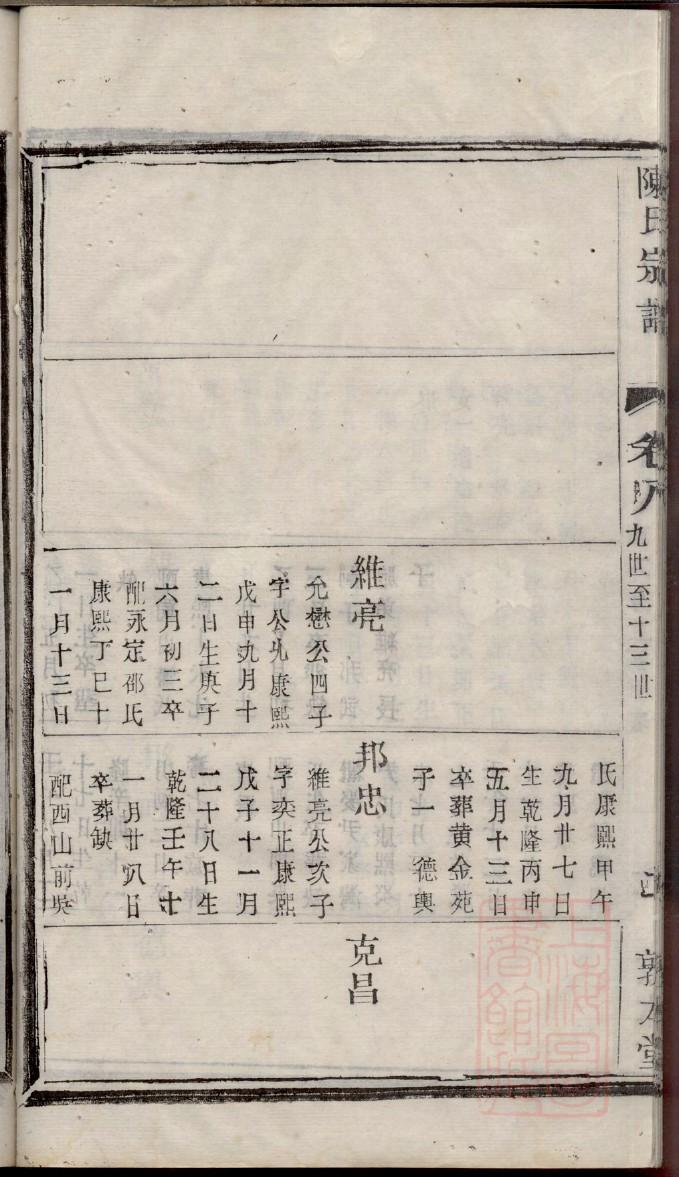 陳氏宗譜
卷八
九世至十三世
敦本堂
維亮
允懋公四子
字公允康熙
戊申九月十
二日生庚子
六月初三卒
配永定邵氏
康熙丁巳十
一月十三日
氏康熙甲午
九月廿七日
生乾隆丙申
五月十三日
卒葬黄金苑
子一 德輿
邦忠
維亮公次子
字奕正康熙
戊子十一月
二十八日生
乾隆壬午十
一月廿八日
卒葬缺
配西山前吳
克昌